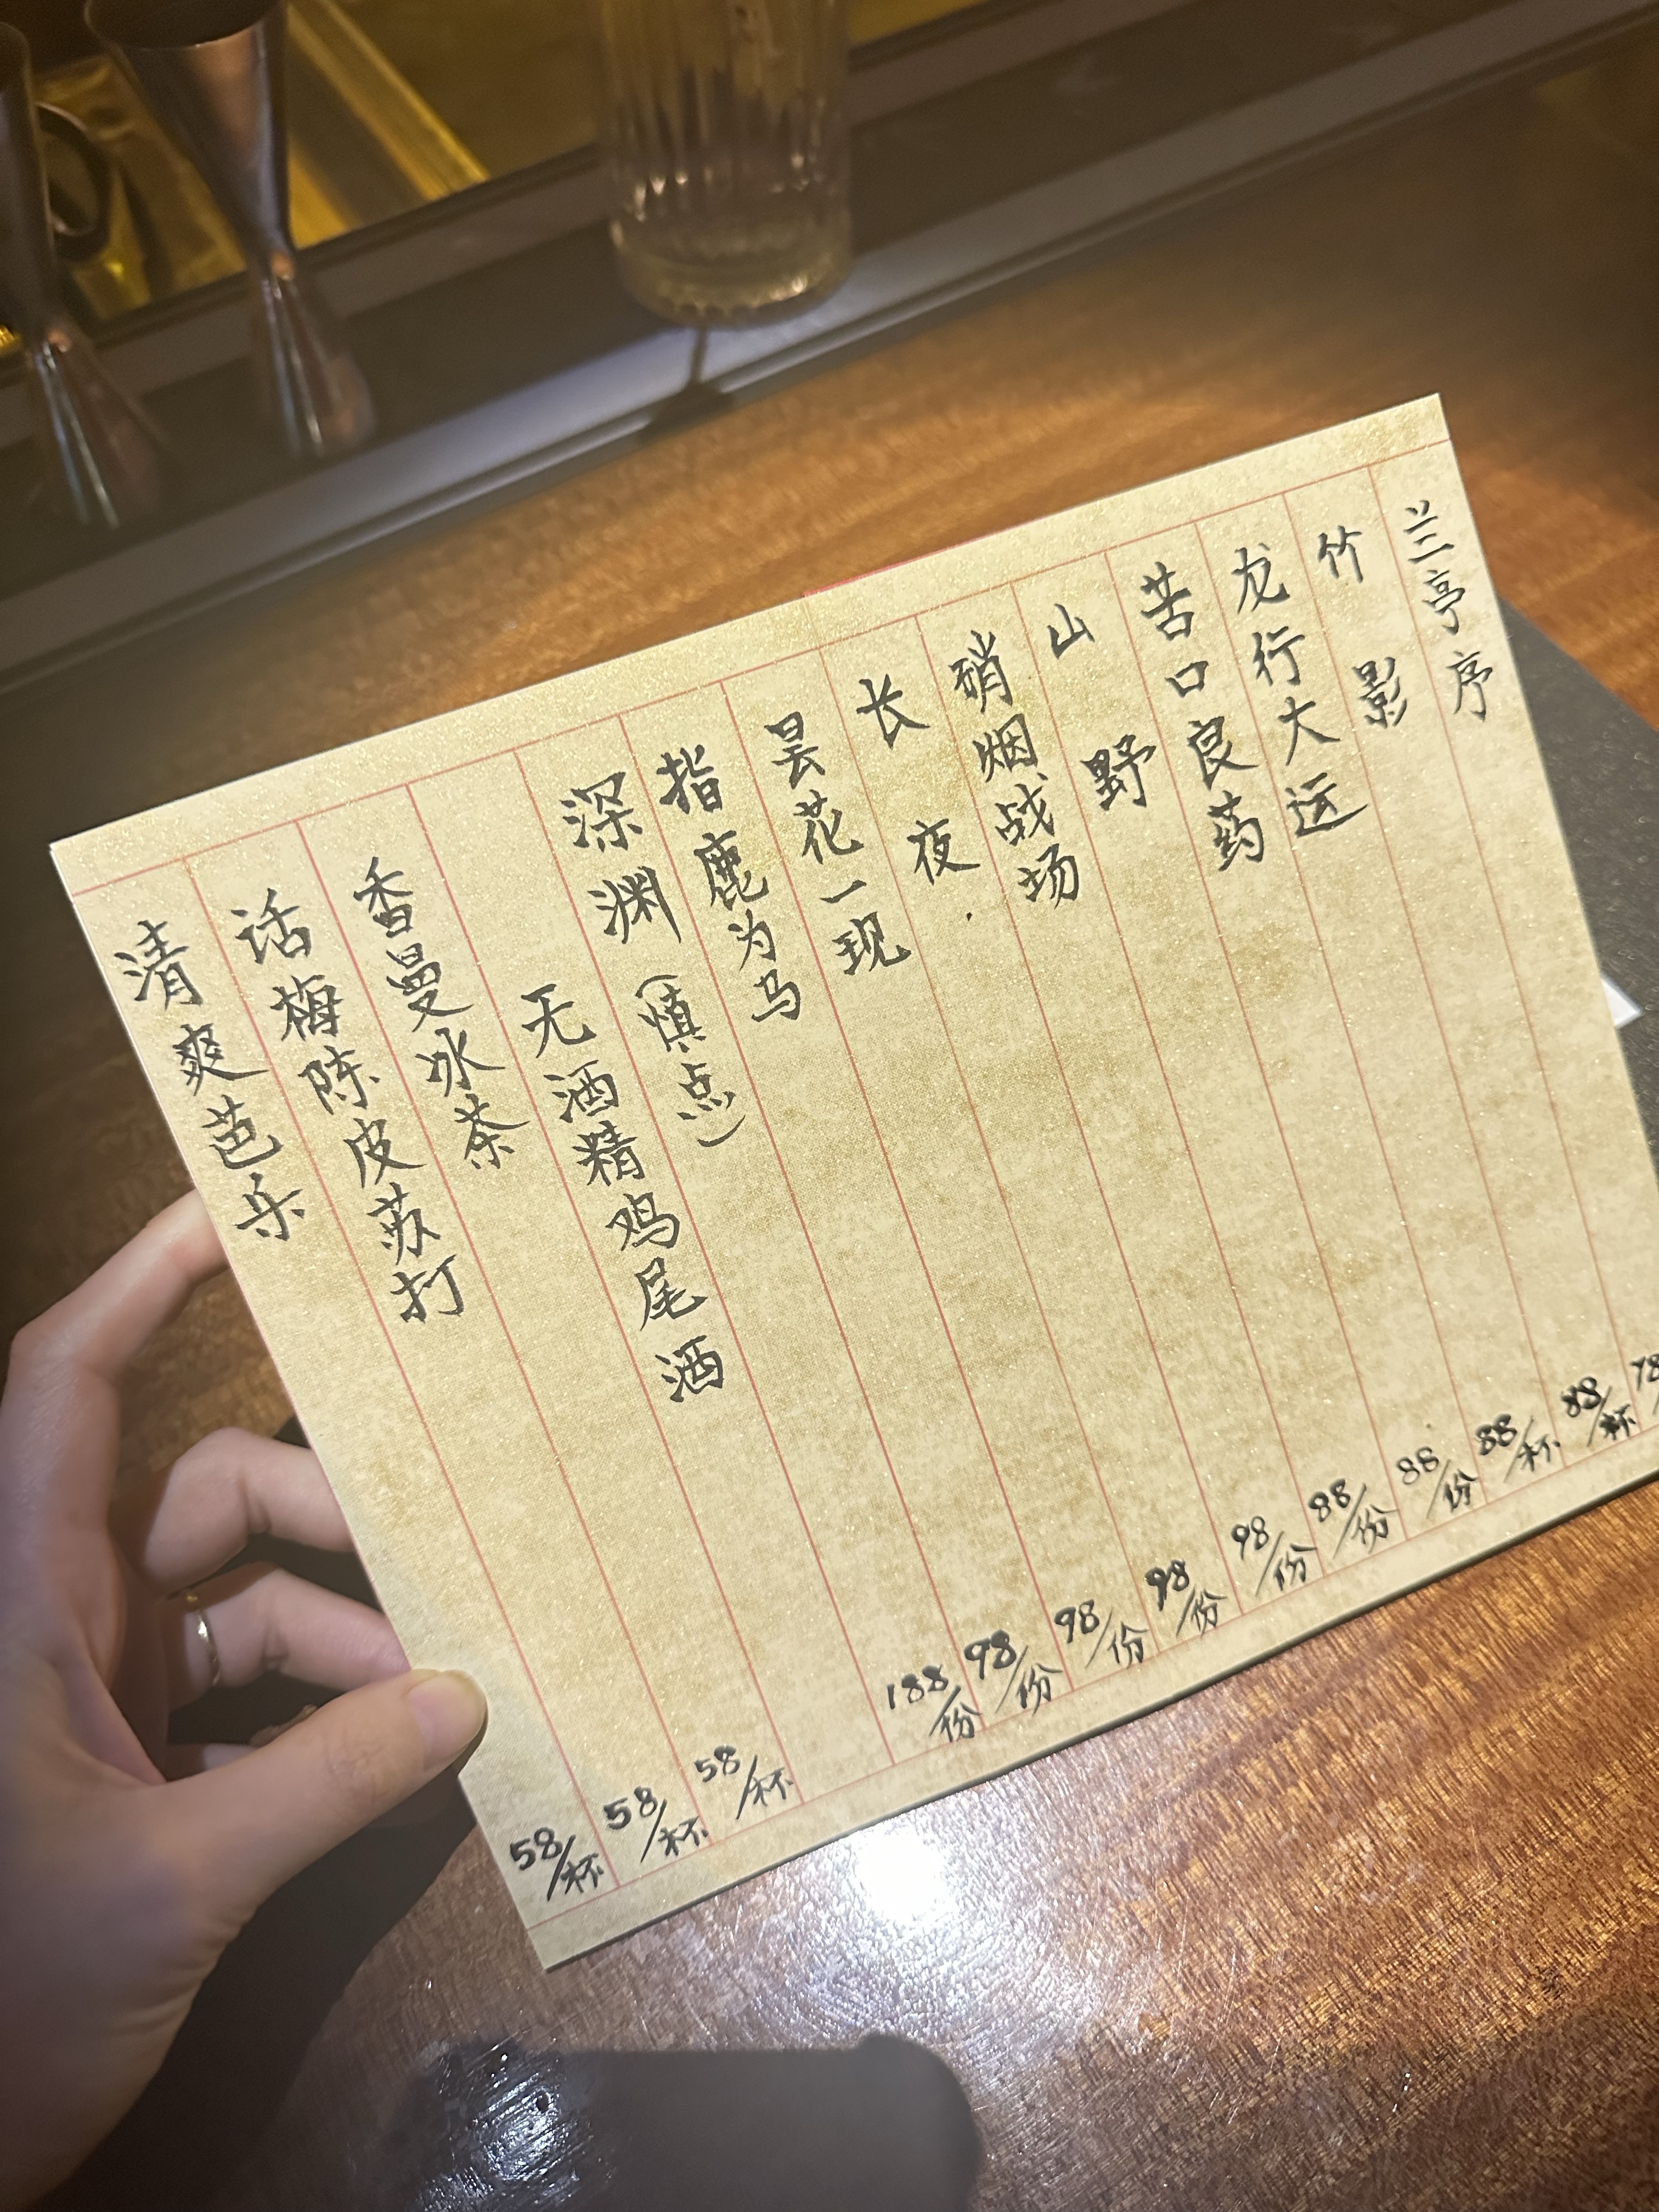 兰亭序
竹影 88/杯
龙行大运 88/杯
苦口良药 88/份
山野 88/份
硝烟战场 98/份
长夜 98/份
昙花一现 98/份
指鹿为马 98/份
深渊(慎点) 188/份
无酒精鸡尾酒
香曼冰茶 58/杯
话梅陈皮苏打 58/杯
清爽芭乐 58/杯